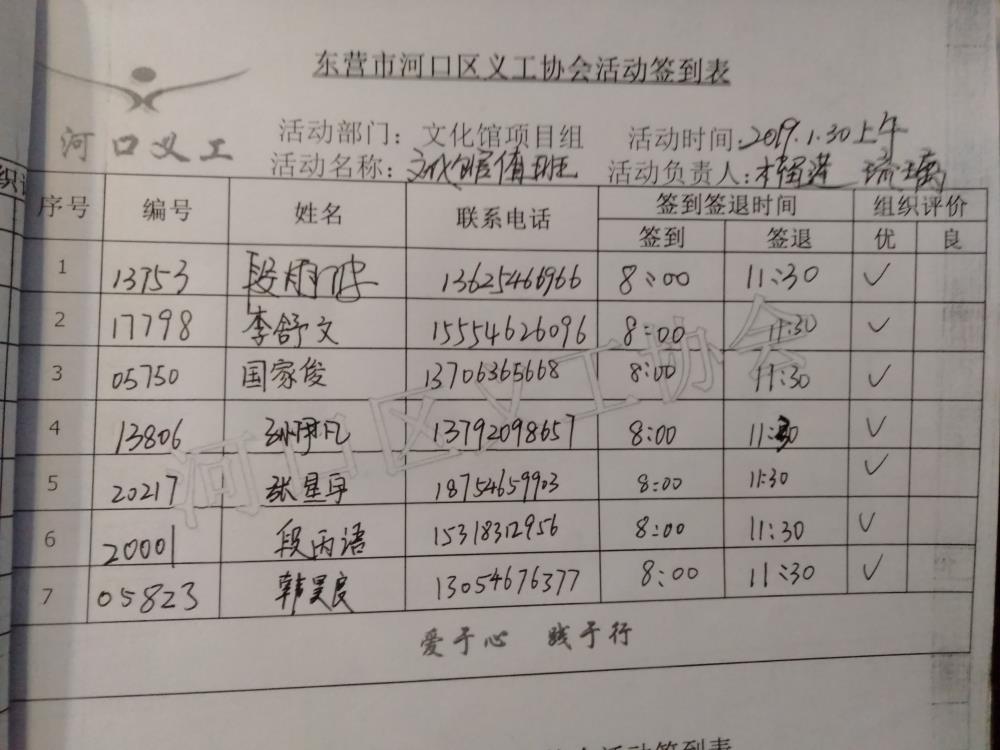 东营市河口区义工协会活动签到表
河口义工
活动部门：文化馆项目组 活动时间:2019.1.30上午
活动名称：文化馆值班 活动负责人:
序号 编号 姓名 联系电话 签到签退时间 组织评价
签到 签退 优 良
1 13753 13625466966 8:00 11:30 ✓
2 17798 李舒文 15554626096 8:00 11:30 ✓
3 05750 国家俊 13706365668 8:00 11:30 ✓
4 13806 13792098657 8:00 11:30 ✓
5 20217 张星宇 18754659903 8:00 11:30 ✓
6 20001 段丙语 15318312956 8:00 11:30 ✓
7 05823 韩昊良 13054676377 8:00 11:30 ✓
河口区义工协会
爱于心 践于行
会活动签到表